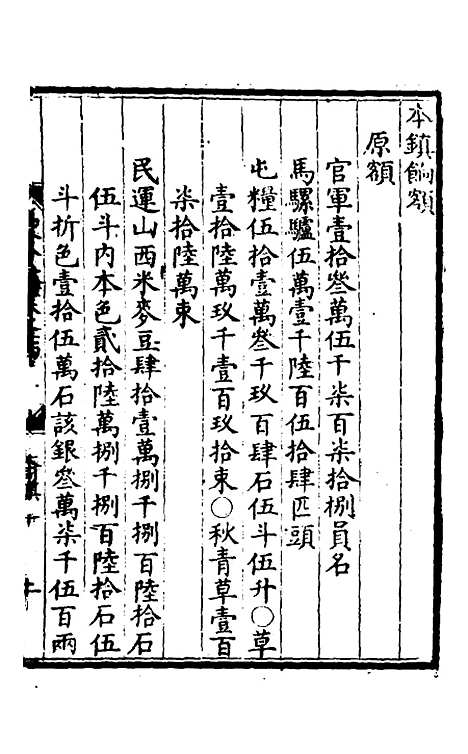 本鎮餉額
原額
官軍壹拾叄萬伍千柒百柒拾捌員名
馬騾驢伍萬壹千陸百伍拾肆匹頭
屯糧伍拾壹萬叄千玖百肆石伍斗伍升○草
壹拾陸萬玖千壹百玖拾束○秋青草壹百
柒拾陸萬束
民運山西米麥豆肆拾壹萬捌千捌百陸拾石
伍斗內本色貳拾陸萬捌千捌百陸拾石伍
斗折色壹拾伍萬石該銀叄萬柒千伍百兩